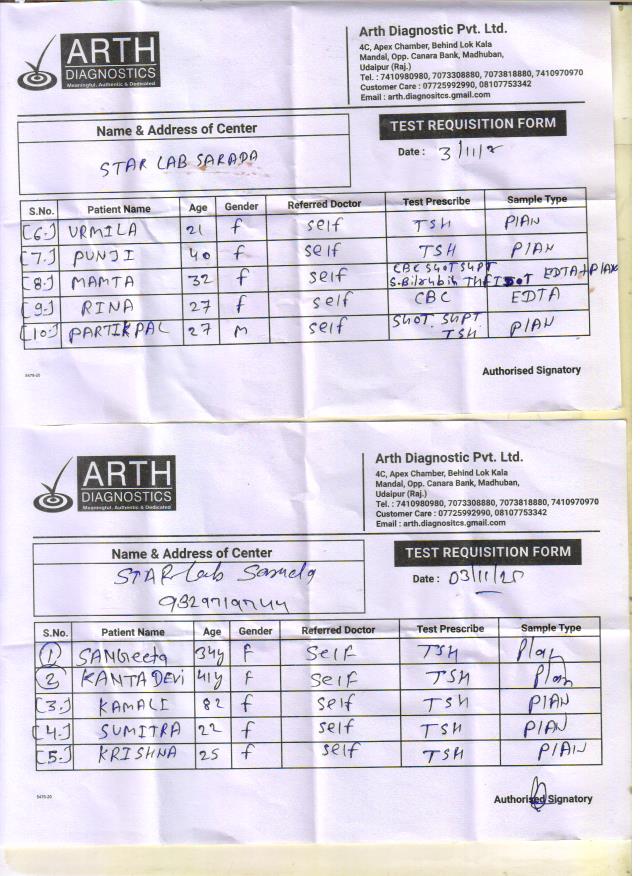 ARTH
DIAGNOSTICS
Meaningful, Authentic & Dedicated
Arth Diagnostic Pvt. Ltd.
4C, Apex Chamber, Behind Lok Kala
Mandal, Opp. Canara Bank, Madhuban,
Udaipur (Raj.)
Tel. : 7410980980, 7073308880, 7073818880, 7410970970
Customer Care : 07725992990, 08107753342
Email : arth.diagnositcs.gmail.com
Name & Address of Center
STAR LAB SARADA
TEST REQUISITION FORM
Date : 3/11/2
S.No. Patient Name Age Gender Referred Doctor Test Prescribe Sample Type
[6.] URMILA 21 f self TSH PlAN
[7.] PUNJI 40 f self TSH PlAN
[8.] MAMTA 32 f self CBC SHOT SHPT S.Bilrubin EDTA+PlAN
[9.] RINA 27 f self CBC EDTA
[10.] PARTIKPAL 27 M self SHOT. SHPT TSH PlAN
Authorised Signatory
5475-20
ARTH
DIAGNOSTICS
Meaningful, Authentic & Dedicated
Arth Diagnostic Pvt. Ltd.
4C, Apex Chamber, Behind Lok Kala
Mandal, Opp. Canara Bank, Madhuban,
Udaipur (Raj.)
Tel. : 7410980980, 7073308880, 7073818880, 7410970970
Customer Care : 07725992990, 08107753342
Email : arth.diagnositcs.gmail.com
Name & Address of Center
STAR Lab Sarada
9329719744
TEST REQUISITION FORM
Date : 03/11/25
S.No. Patient Name Age Gender Referred Doctor Test Prescribe Sample Type
1 SANGeeta 34y F Self TSH Plan
2 KANTA DEVi 41y F Self TSH Plan
[3.] KAMALI 82 f self TSH PlAN
[4.] SUMITRA 22 f self TSH PlAN
[5.] KRISHNA 25 f self TSH PlAIN
5475-20
Authorised Signatory